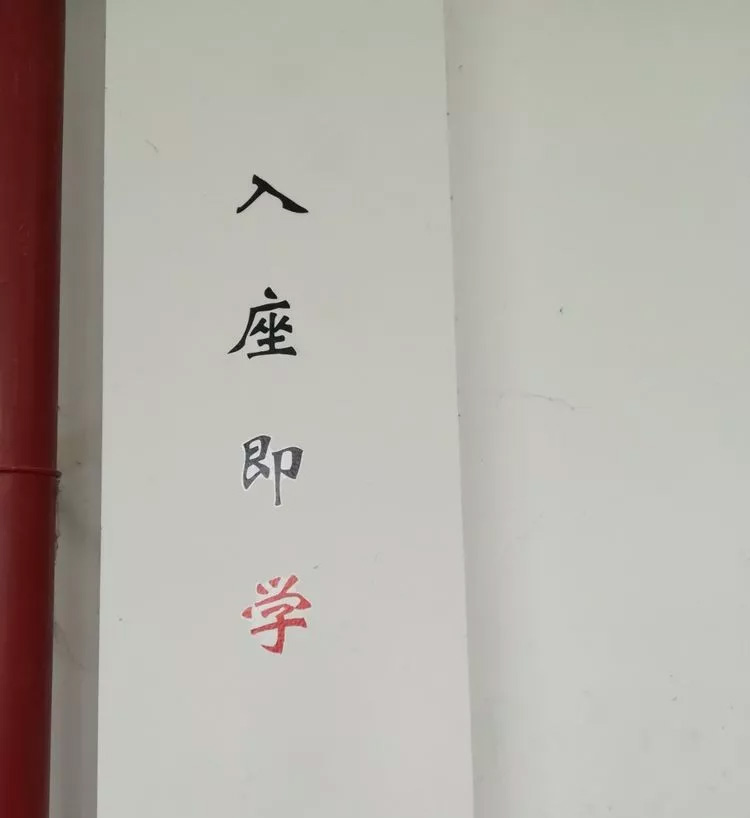 入座即学